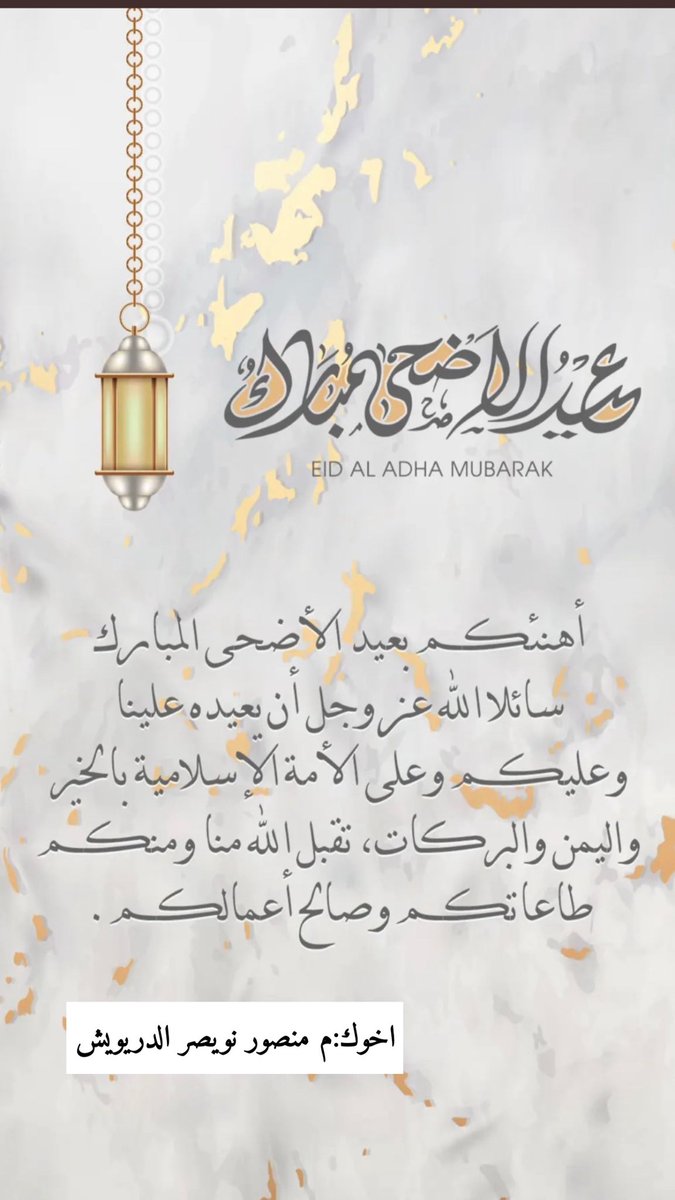 عيد الاضحى مبارك
EID AL ADHA MUBARAK
أهنئكم بعيد الأضحى المبارك
سائلا الله عز وجل أن يعيده علينا
وعليكم وعلى الأمة الإسلامية بالخير
واليمن والبركات، تقبل الله منا ومنكم
طاعاتكم وصالح أعمالكم .
اخوك:م منصور نويصر الدريويش